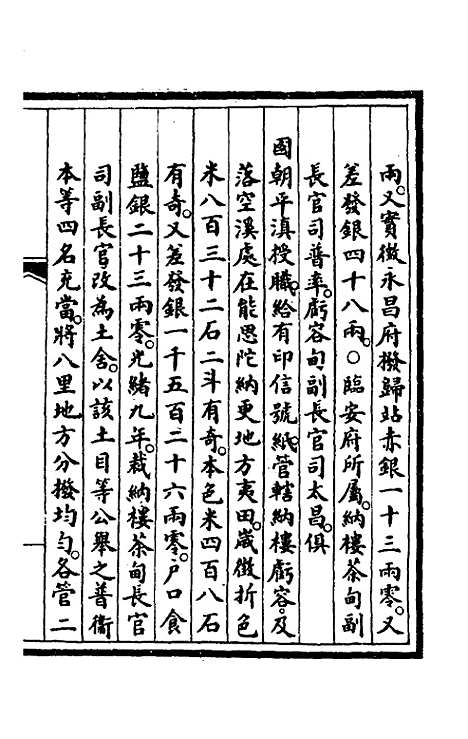 兩。又實徵永昌府撥歸站赤銀一十三兩零。又
差發銀四十八兩。○臨安府所屬。納樓茶甸副
長官司普率。虧容甸副長官司太昌。俱
國朝平滇授職。給有印信號紙。管轄納樓虧容。及
落空溪處在能思陀納更地方夷田。歲徵折色
米八百三十二石二斗有奇。本色米四百八石
有奇。又差發銀一千五百二十六兩零。戶口食
鹽銀二十三兩零。光緒九年。裁納樓茶甸長官
司副長官。改為土舍。以該土目等公舉之普衞
本等四名充當。將八里地方分撥均勻。各管二